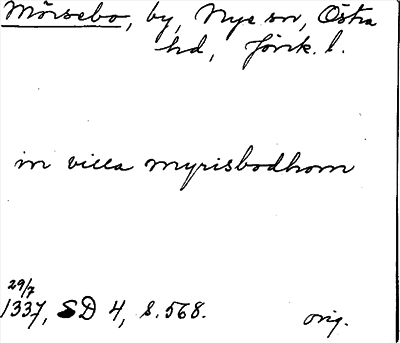 Mörsebo, by, Nye sn, Östra
hd, Jönk. l.
in villa myrisbodhom
29/7
1337, SD 4, s. 568.
orig.